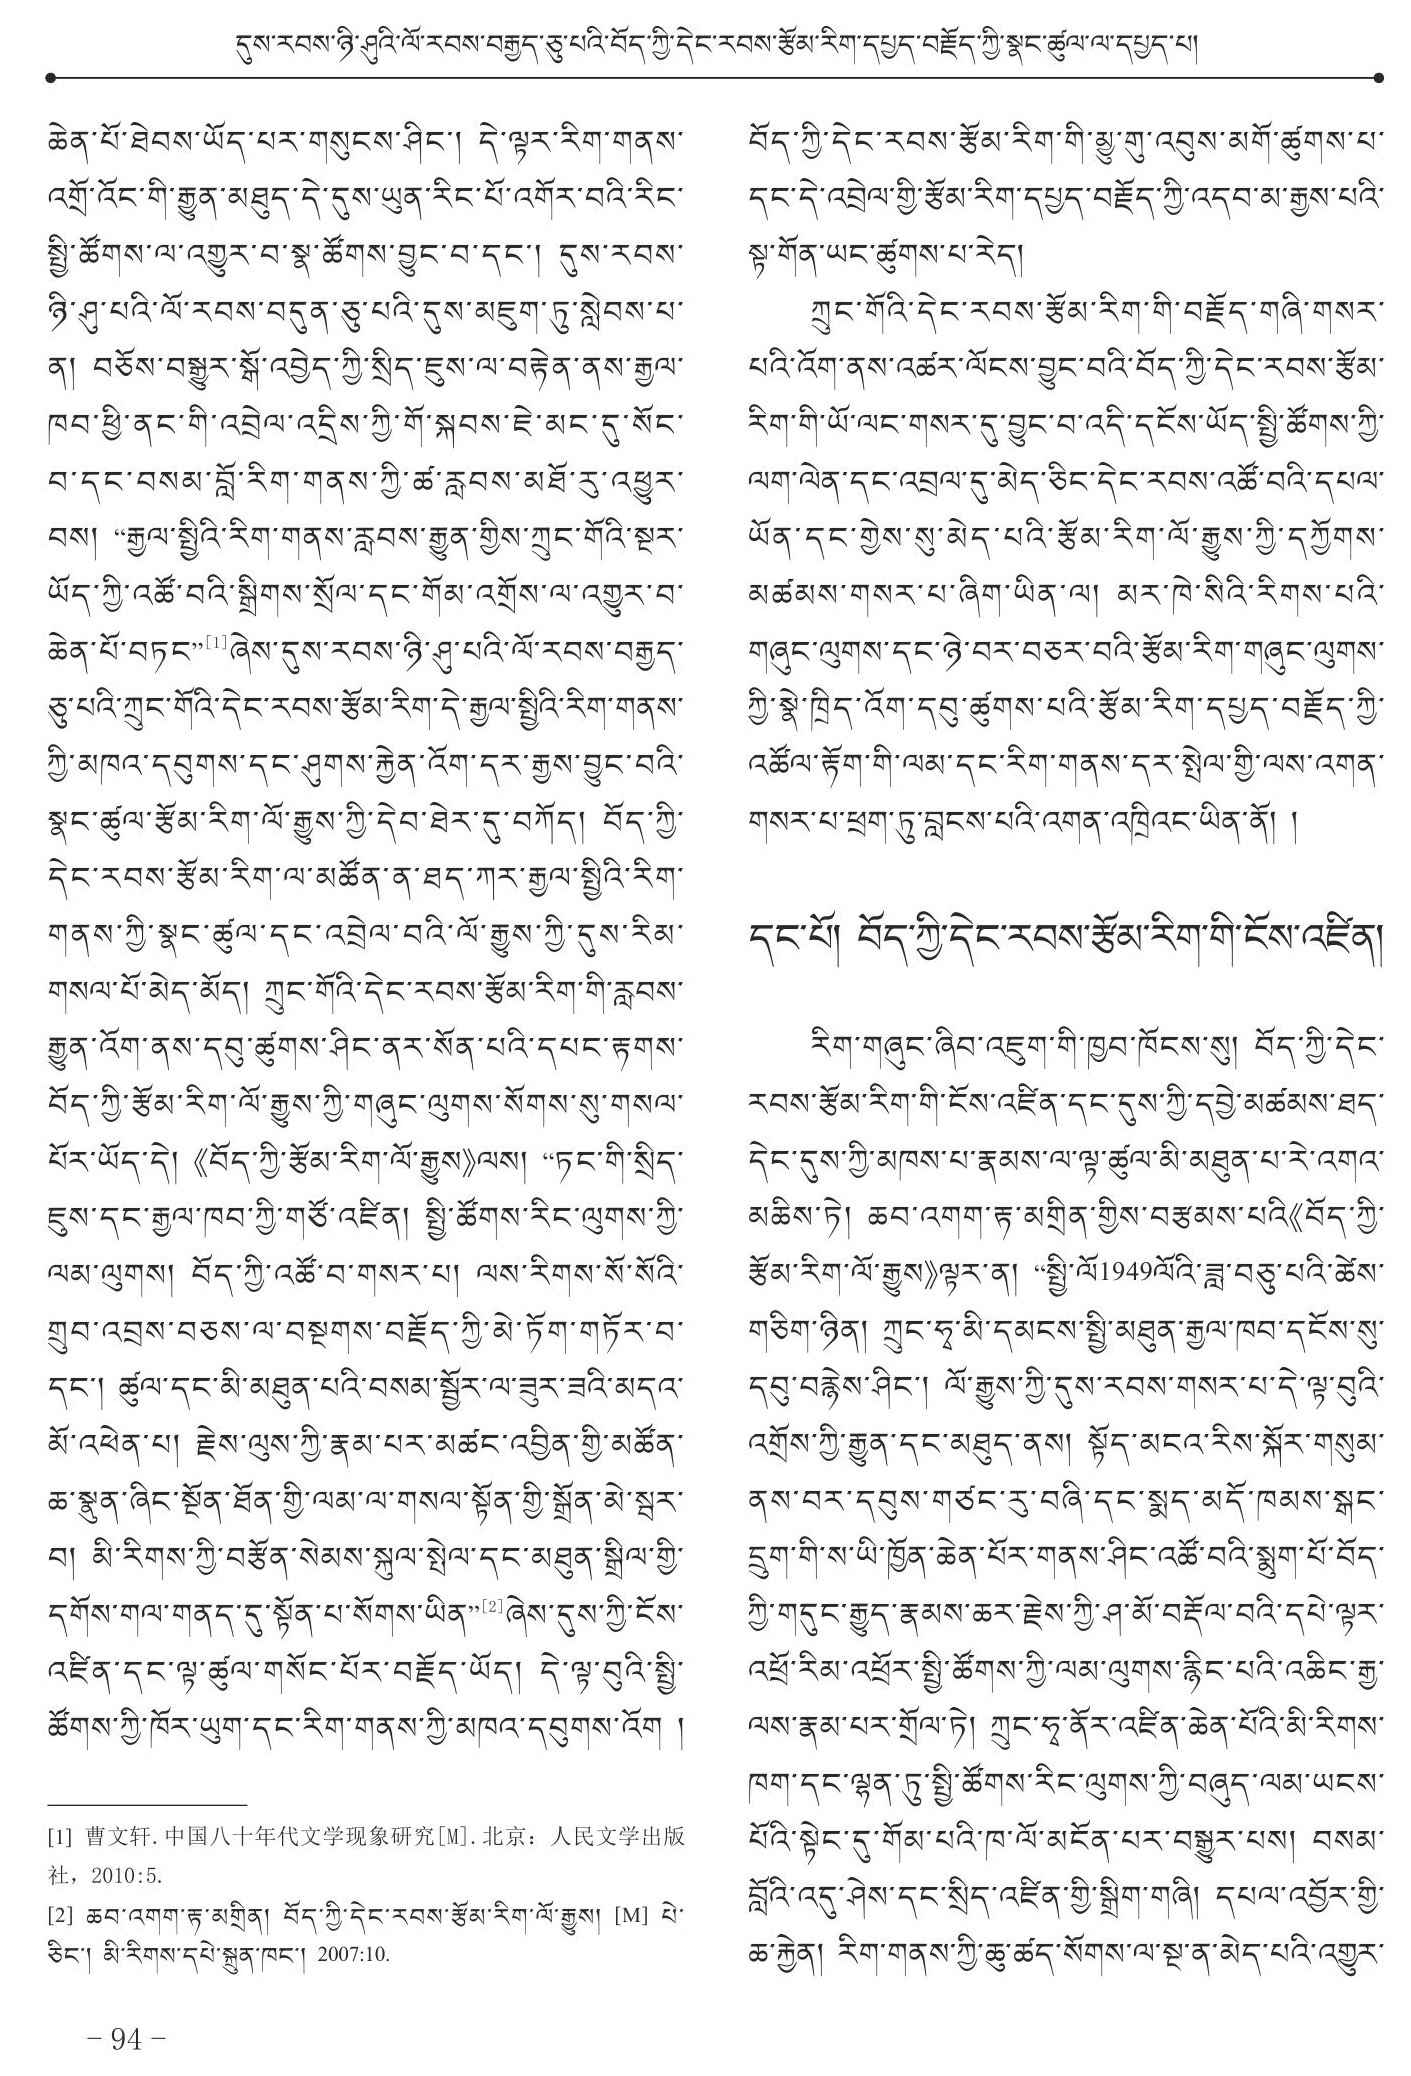 དུས་རབས་ཉི་ཤུའི་ལོ་རབས་བརྒྱད་ཅུ་པའི་བོད་ཀྱི་དེང་རབས་རྩོམ་རིག་དཔྱད་བརྗོད་ཀྱི་སྣང་ཚུལ་ལ་དཔྱད་པ།
ཆེན་པོ་ཐེབས་ཡོད་པར་གསུངས་ཤིང་། དེ་ལྟར་རིག་གནས་
འགྲོ་འོང་གི་རྒྱུན་མཐུད་དེ་དུས་ཡུན་རིང་པོ་འགོར་བའི་རིང་
སྤྱི་ཚོགས་ལ་འགྱུར་བ་སྣ་ཚོགས་བྱུང་བ་དང་། དུས་རབས་
ཉི་ཤུ་པའི་ལོ་རབས་བདུན་ཅུ་པའི་དུས་མཇུག་ཏུ་སླེབས་པ་
ན། བཅོས་བསྒྱུར་སྒོ་འབྱེད་ཀྱི་སྲིད་ཇུས་ལ་བརྟེན་ནས་རྒྱལ་
ཁབ་ཕྱི་ནང་གི་འབྲེལ་འདྲིས་ཀྱི་གོ་སྐབས་ཇེ་མང་དུ་སོང་
བ་དང་བསམ་བློ་རིག་གནས་ཀྱི་ཚ་རླབས་མཐོ་རུ་འཕྱུར་
བས། “རྒྱལ་སྤྱིའི་རིག་གནས་རླབས་རྒྱུན་གྱིས་ཀྲུང་གོའི་སྔར་
ཡོད་ཀྱི་འཚོ་བའི་སྒྲིགས་སྲོལ་དང་གོམ་འགྲོས་ལ་འགྱུར་བ་
ཆེན་པོ་བཏང་”[1]ཞེས་དུས་རབས་ཉི་ཤུ་པའི་ལོ་རབས་བརྒྱད་
ཅུ་པའི་ཀྲུང་གོའི་དེང་རབས་རྩོམ་རིག་དེ་རྒྱལ་སྤྱིའི་རིག་གནས་
ཀྱི་མཁའ་དབུགས་དང་ཤུགས་རྐྱེན་འོག་དར་རྒྱས་བྱུང་བའི་
སྣང་ཚུལ་རྩོམ་རིག་ལོ་རྒྱུས་ཀྱི་དེབ་ཐེར་དུ་བཀོད། བོད་ཀྱི་
དེང་རབས་རྩོམ་རིག་ལ་མཚོན་ན་ཐད་ཀར་རྒྱལ་སྤྱིའི་རིག་
གནས་ཀྱི་སྣང་ཚུལ་དང་འབྲེལ་བའི་ལོ་རྒྱུས་ཀྱི་དུས་རིམ་
གསལ་པོ་མེད་མོད། ཀྲུང་གོའི་དེང་རབས་རྩོམ་རིག་གི་རླབས་
རྒྱུན་འོག་ནས་དབུ་ཚུགས་ཤིང་ནར་སོན་པའི་དཔང་རྟགས་
བོད་ཀྱི་རྩོམ་རིག་ལོ་རྒྱུས་ཀྱི་གཞུང་ལུགས་སོགས་སུ་གསལ་
པོར་ཡོད་དེ། 《བོད་ཀྱི་རྩོམ་རིག་ལོ་རྒྱུས》ལས། “ཏང་གི་སྲིད་
ཇུས་དང་རྒྱལ་ཁབ་ཀྱི་གཙོ་འཛིན། སྤྱི་ཚོགས་རིང་ལུགས་ཀྱི་
ལམ་ལུགས། བོད་ཀྱི་འཚོ་བ་གསར་པ། ལས་རིགས་སོ་སོའི་
གྲུབ་འབྲས་བཅས་ལ་བསྔགས་བརྗོད་ཀྱི་མེ་ཏོག་གཏོར་བ་
དང་། ཚུལ་དང་མི་མཐུན་པའི་བསམ་སྦྱོར་ལ་ཟུར་ཟའི་མདའ་
མོ་འཕེན་པ། རྗེས་ལུས་ཀྱི་རྣམ་པར་མཚང་འབྱིན་གྱི་མཚོན་
ཆ་སྣུན་ཞིང་སྔོན་ཐོན་གྱི་ལམ་ལ་གསལ་སྟོན་གྱི་སྒྲོན་མེ་སྦར་
བ། མི་རིགས་ཀྱི་བརྩོན་སེམས་སྐུལ་སྤེལ་དང་མཐུན་སྒྲིལ་གྱི་
དགོས་གལ་གནད་དུ་སྟོན་པ་སོགས་ཡིན”[2]ཞེས་དུས་ཀྱི་ངོས་
འཛིན་དང་ལྟ་ཚུལ་གསོང་པོར་བརྗོད་ཡོད། དེ་ལྟ་བུའི་སྤྱི་
ཚོགས་ཀྱི་ཁོར་ཡུག་དང་རིག་གནས་ཀྱི་མཁའ་དབུགས་འོག །
[1] 曹文轩.中国八十年代文学现象研究[M].北京：人民文学出版
社，2010:5.
[2] ཆབ་འགག་རྟ་མགྲིན། བོད་ཀྱི་དེང་རབས་རྩོམ་རིག་ལོ་རྒྱུས། [M] པེ་
ཅིང་། མི་རིགས་དཔེ་སྐྲུན་ཁང་། 2007:10.
བོད་ཀྱི་དེང་རབས་རྩོམ་རིག་གི་མྱུ་གུ་འབུས་མགོ་ཚུགས་པ་
དང་དེ་འབྲེལ་གྱི་རྩོམ་རིག་དཔྱད་བརྗོད་ཀྱི་འདབ་མ་རྒྱས་པའི་
སྟ་གོན་ཡང་ཚུགས་པ་རེད།
ཀྲུང་གོའི་དེང་རབས་རྩོམ་རིག་གི་བརྗོད་གཞི་གསར་
པའི་འོག་ནས་འཚར་ལོངས་བྱུང་བའི་བོད་ཀྱི་དེང་རབས་རྩོམ་
རིག་གི་ཡོ་ལང་གསར་དུ་བྱུང་བ་འདི་དངོས་ཡོད་སྤྱི་ཚོགས་ཀྱི་
ལག་ལེན་དང་འབྲལ་དུ་མེད་ཅིང་དེང་རབས་འཚོ་བའི་དཔལ་
ཡོན་དང་གྱེས་སུ་མེད་པའི་རྩོམ་རིག་ལོ་རྒྱུས་ཀྱི་དཀྱོགས་
མཚམས་གསར་པ་ཞིག་ཡིན་ལ། མར་ཁེ་སིའི་རིགས་པའི་
གཞུང་ལུགས་དང་ཉེ་བར་བཅར་བའི་རྩོམ་རིག་གཞུང་ལུགས་
ཀྱི་སྣེ་ཁྲིད་འོག་དབུ་ཚུགས་པའི་རྩོམ་རིག་དཔྱད་བརྗོད་ཀྱི་
འཚོལ་རྟོག་གི་ལམ་དང་རིག་གནས་དར་སྤེལ་གྱི་ལས་འགན་
གསར་པ་ཕྲག་ཏུ་བླངས་པའི་འགན་འཁྲིའང་ཡིན་ནོ། །
དང་པོ། བོད་ཀྱི་དེང་རབས་རྩོམ་རིག་གི་ངོས་འཛིན།
རིག་གཞུང་ཞིབ་འཇུག་གི་ཁྱབ་ཁོངས་སུ། བོད་ཀྱི་དེང་
རབས་རྩོམ་རིག་གི་ངོས་འཛིན་དང་དུས་ཀྱི་དབྱེ་མཚམས་ཐད་
དེང་དུས་ཀྱི་མཁས་པ་རྣམས་ལ་ལྟ་ཚུལ་མི་མཐུན་པ་རེ་འགའ་
མཆིས་ཏེ། ཆབ་འགག་རྟ་མགྲིན་གྱིས་བརྩམས་པའི《བོད་ཀྱི་
རྩོམ་རིག་ལོ་རྒྱུས》ལྟར་ན། “སྤྱི་ལོ1949ལོའི་ཟླ་བཅུ་པའི་ཚེས་
གཅིག་ཉིན། ཀྲུང་ཧྭ་མི་དམངས་སྤྱི་མཐུན་རྒྱལ་ཁབ་དངོས་སུ་
དབུ་བརྙེས་ཤིང་། ལོ་རྒྱུས་ཀྱི་དུས་རབས་གསར་པ་དེ་ལྟ་བུའི་
འགྲོས་ཀྱི་རྒྱུན་དང་མཐུད་ནས། སྟོད་མངའ་རིས་སྐོར་གསུམ་
ནས་བར་དབུས་གཙང་རུ་བཞི་དང་སྨད་མདོ་ཁམས་སྒང་
དྲུག་གི་ས་ཡི་ཁྱོན་ཆེན་པོར་གནས་ཤིང་འཚོ་བའི་སྨུག་པོ་བོད་
ཀྱི་གདུང་རྒྱུད་རྣམས་ཆར་རྗེས་ཀྱི་ཤ་མོ་བརྡོལ་བའི་དཔེ་ལྟར་
འཕྲོ་རིམ་འཕྲོར་སྤྱི་ཚོགས་ཀྱི་ལམ་ལུགས་རྙིང་པའི་འཆིང་རྒྱ་
ལས་རྣམ་པར་གྲོལ་ཏེ། ཀྲུང་ཧྭ་ནོར་འཛིན་ཆེན་པོའི་མི་རིགས་
ཁག་དང་ལྷན་ཏུ་སྤྱི་ཚོགས་རིང་ལུགས་ཀྱི་བཞུད་ལམ་ཡངས་
པོའི་སྟེང་དུ་གོམ་པའི་ཁ་ལོ་མངོན་པར་བསྒྱུར་པས། བསམ་
བློའི་འདུ་ཤེས་དང་སྲིད་འཛིན་གྱི་སྒྲིག་གཞི། དཔལ་འབྱོར་གྱི་
ཆ་རྐྱེན། རིག་གནས་ཀྱི་ཆུ་ཚད་སོགས་ལ་སྔ་ན་མེད་པའི་འགྱུར་
– 94 –